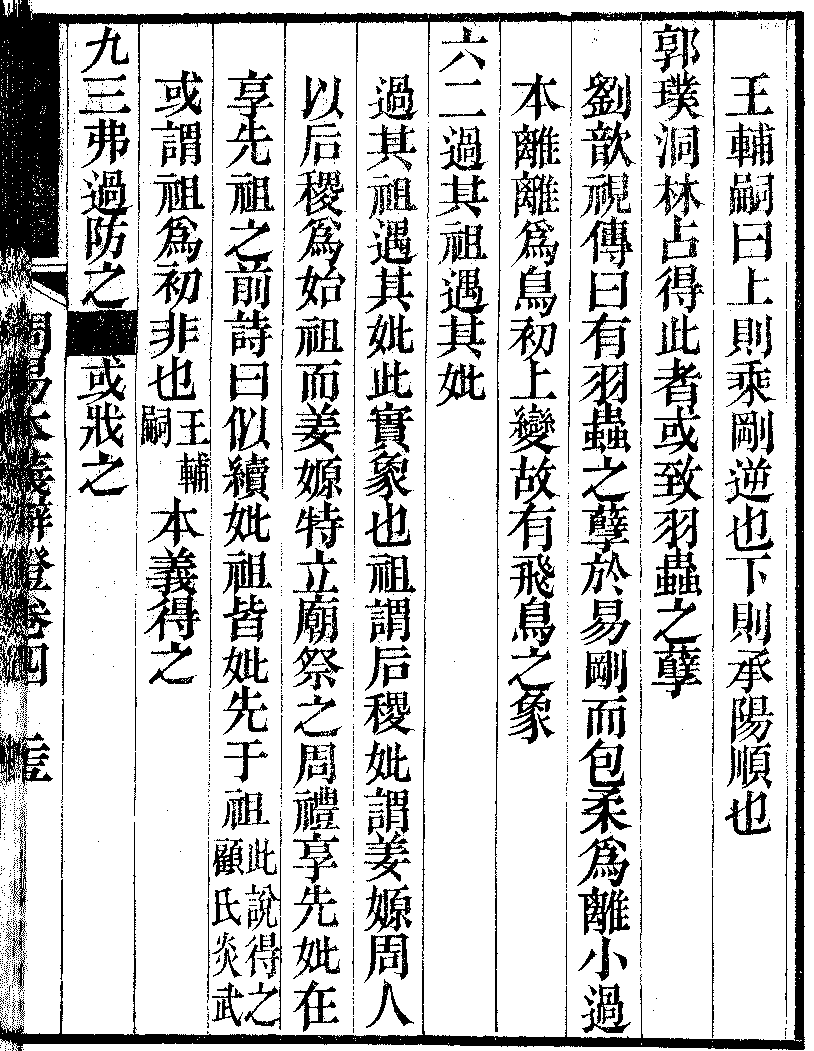 王輔嗣曰上則乘剛逆也下則承陽順也
郭璞洞林占得此者或致羽蟲之孽
劉歆視傳曰有羽蟲之孽於易剛而包柔爲離小過
本離離爲鳥初上變故有飛鳥之象
六二過其祖遇其妣
過其祖遇其妣此實象也祖謂后稷妣謂姜嫄周人
以后稷爲始祖而姜嫄特立廟祭之周禮享先妣在
享先祖之前詩曰似續妣祖皆妣先于祖此說得之顧氏炎武
或謂祖爲初非也王輔嗣本義得之
九三弗過防之或戕之
周易本義辯證卷四